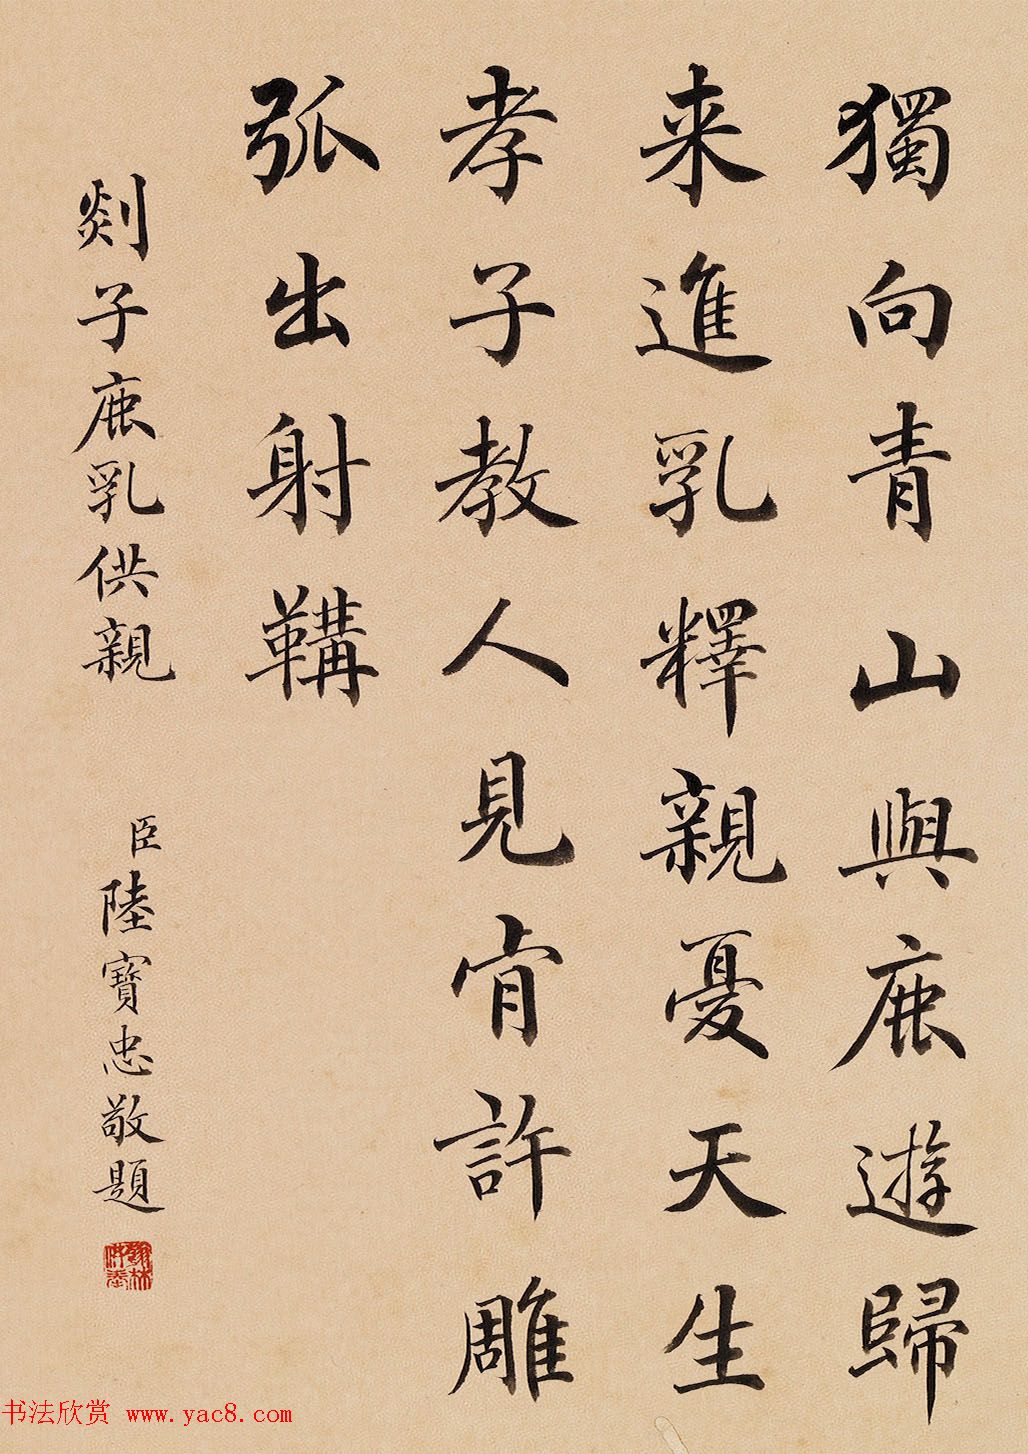 獨向青山與鹿遊歸
来進乳釋親憂天生
孝子教人見肯許雕
弧出射鞲
剡子鹿乳供親
臣陸寶忠敬題
书法欣赏 www.yac8.com